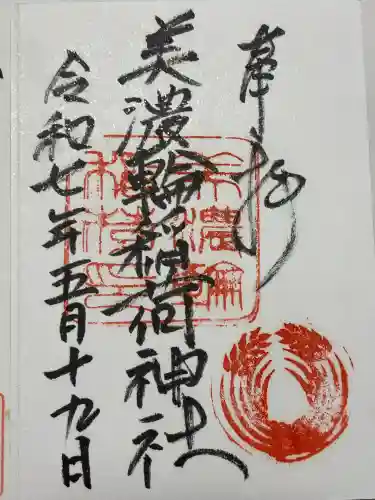 奉拝
美濃輪稲荷神社
令和七年五月十九日